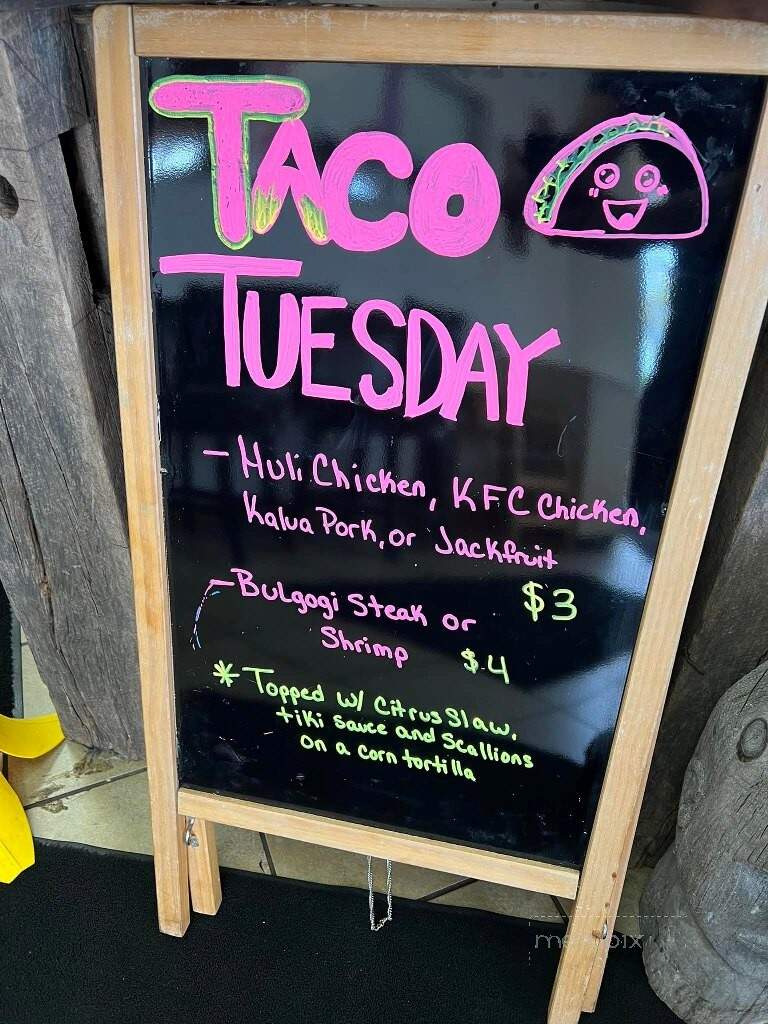 TACO
TUESDAY
- Huli Chicken, KFC Chicken,
Kalua Pork, or Jackfruit
$3
- Bulgogi Steak or
Shrimp $4
* Topped w/ Citrus Slaw,
tiki sauce and Scallions
on a corn tortilla